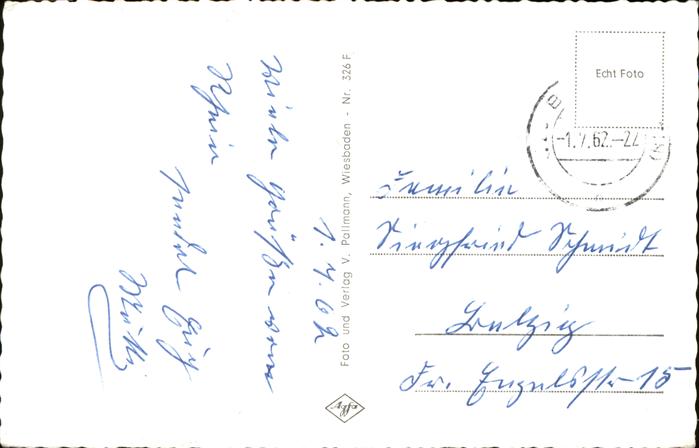 1. 7. 62
Viele Grüße vom
Rhein
sendet Euch
Mutti
Foto und Verlag V. Pallmann, Wiesbaden - Nr. 326 F
Echt Foto
-1.7.62.-22
Familie
Siegfried Schmidt
Belzig
Fr. Engelsstr 15